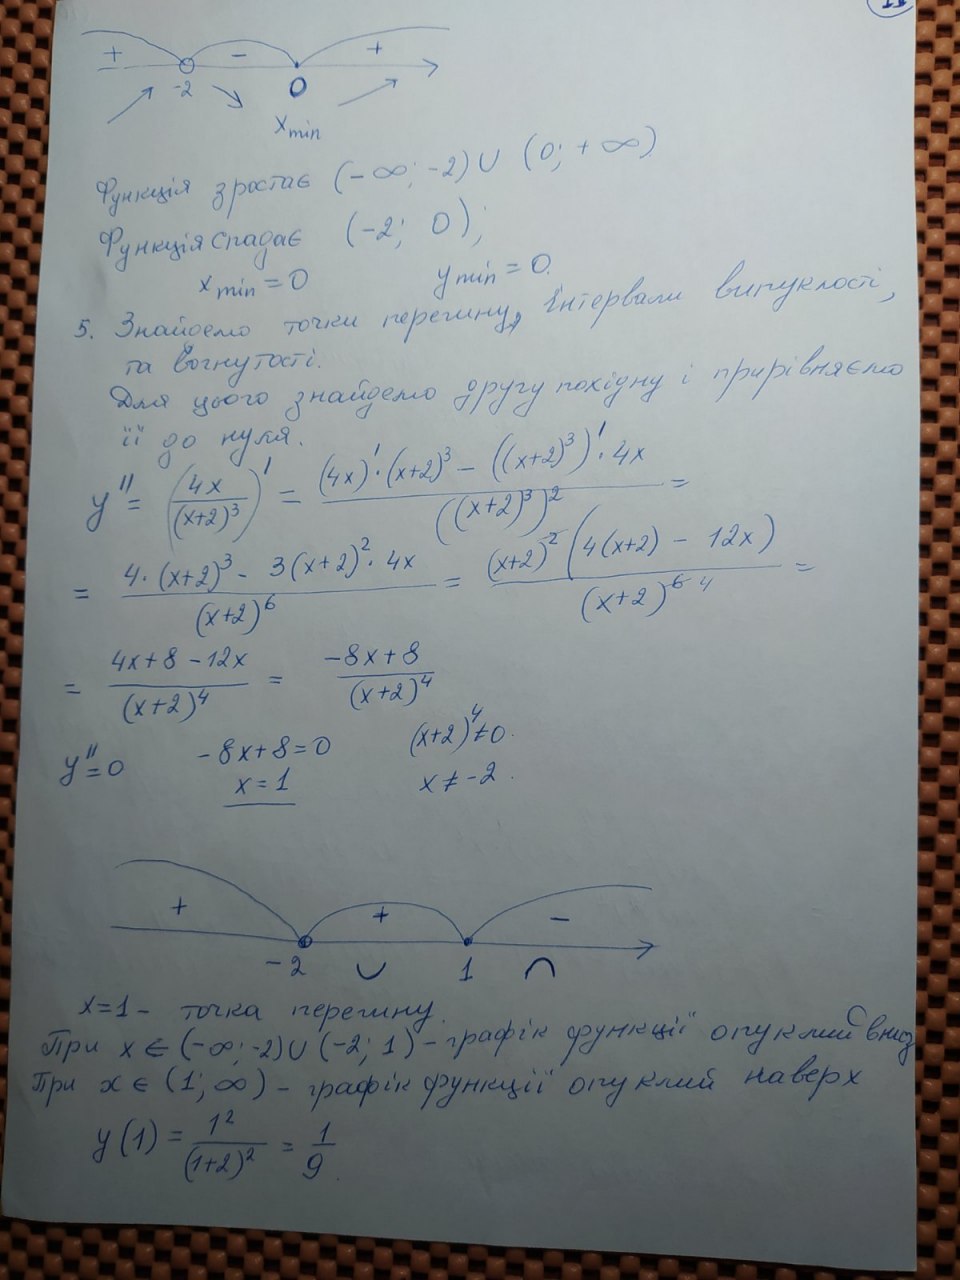 + - +
-2 0
x min
Функція зростає (-∞; -2) ∪ (0; +∞)
Функція спадає (-2; 0);
x min = 0 y min = 0.
5. Знайдемо точки перегину, інтервали випуклості,
та вогнутості.
Для цього знайдемо другу похідну і прирівняємо
її до нуля.
y'' = (4x/(x+2)³)' = ((4x)'·(x+2)³ - ((x+2)³)'·4x)/((x+2)³)² =
= (4·(x+2)³ - 3(x+2)²·4x)/(x+2)⁶ = ((x+2)²(4(x+2) - 12x))/(x+2)⁶ ⁴ =
= (4x+8-12x)/(x+2)⁴ = (-8x+8)/(x+2)⁴
y''=0 -8x+8=0 (x+2)⁴≠0.
x=1 x≠-2.
+ + -
-2 ∪ 1 ∩
x=1 - точка перегину.
При x ∈ (-∞; -2) ∪ (-2; 1) - графік функції опуклий вниз
При x ∈ (1; ∞) - графік функції опуклий наверх
y(1) = 1²/(1+2)² = 1/9.